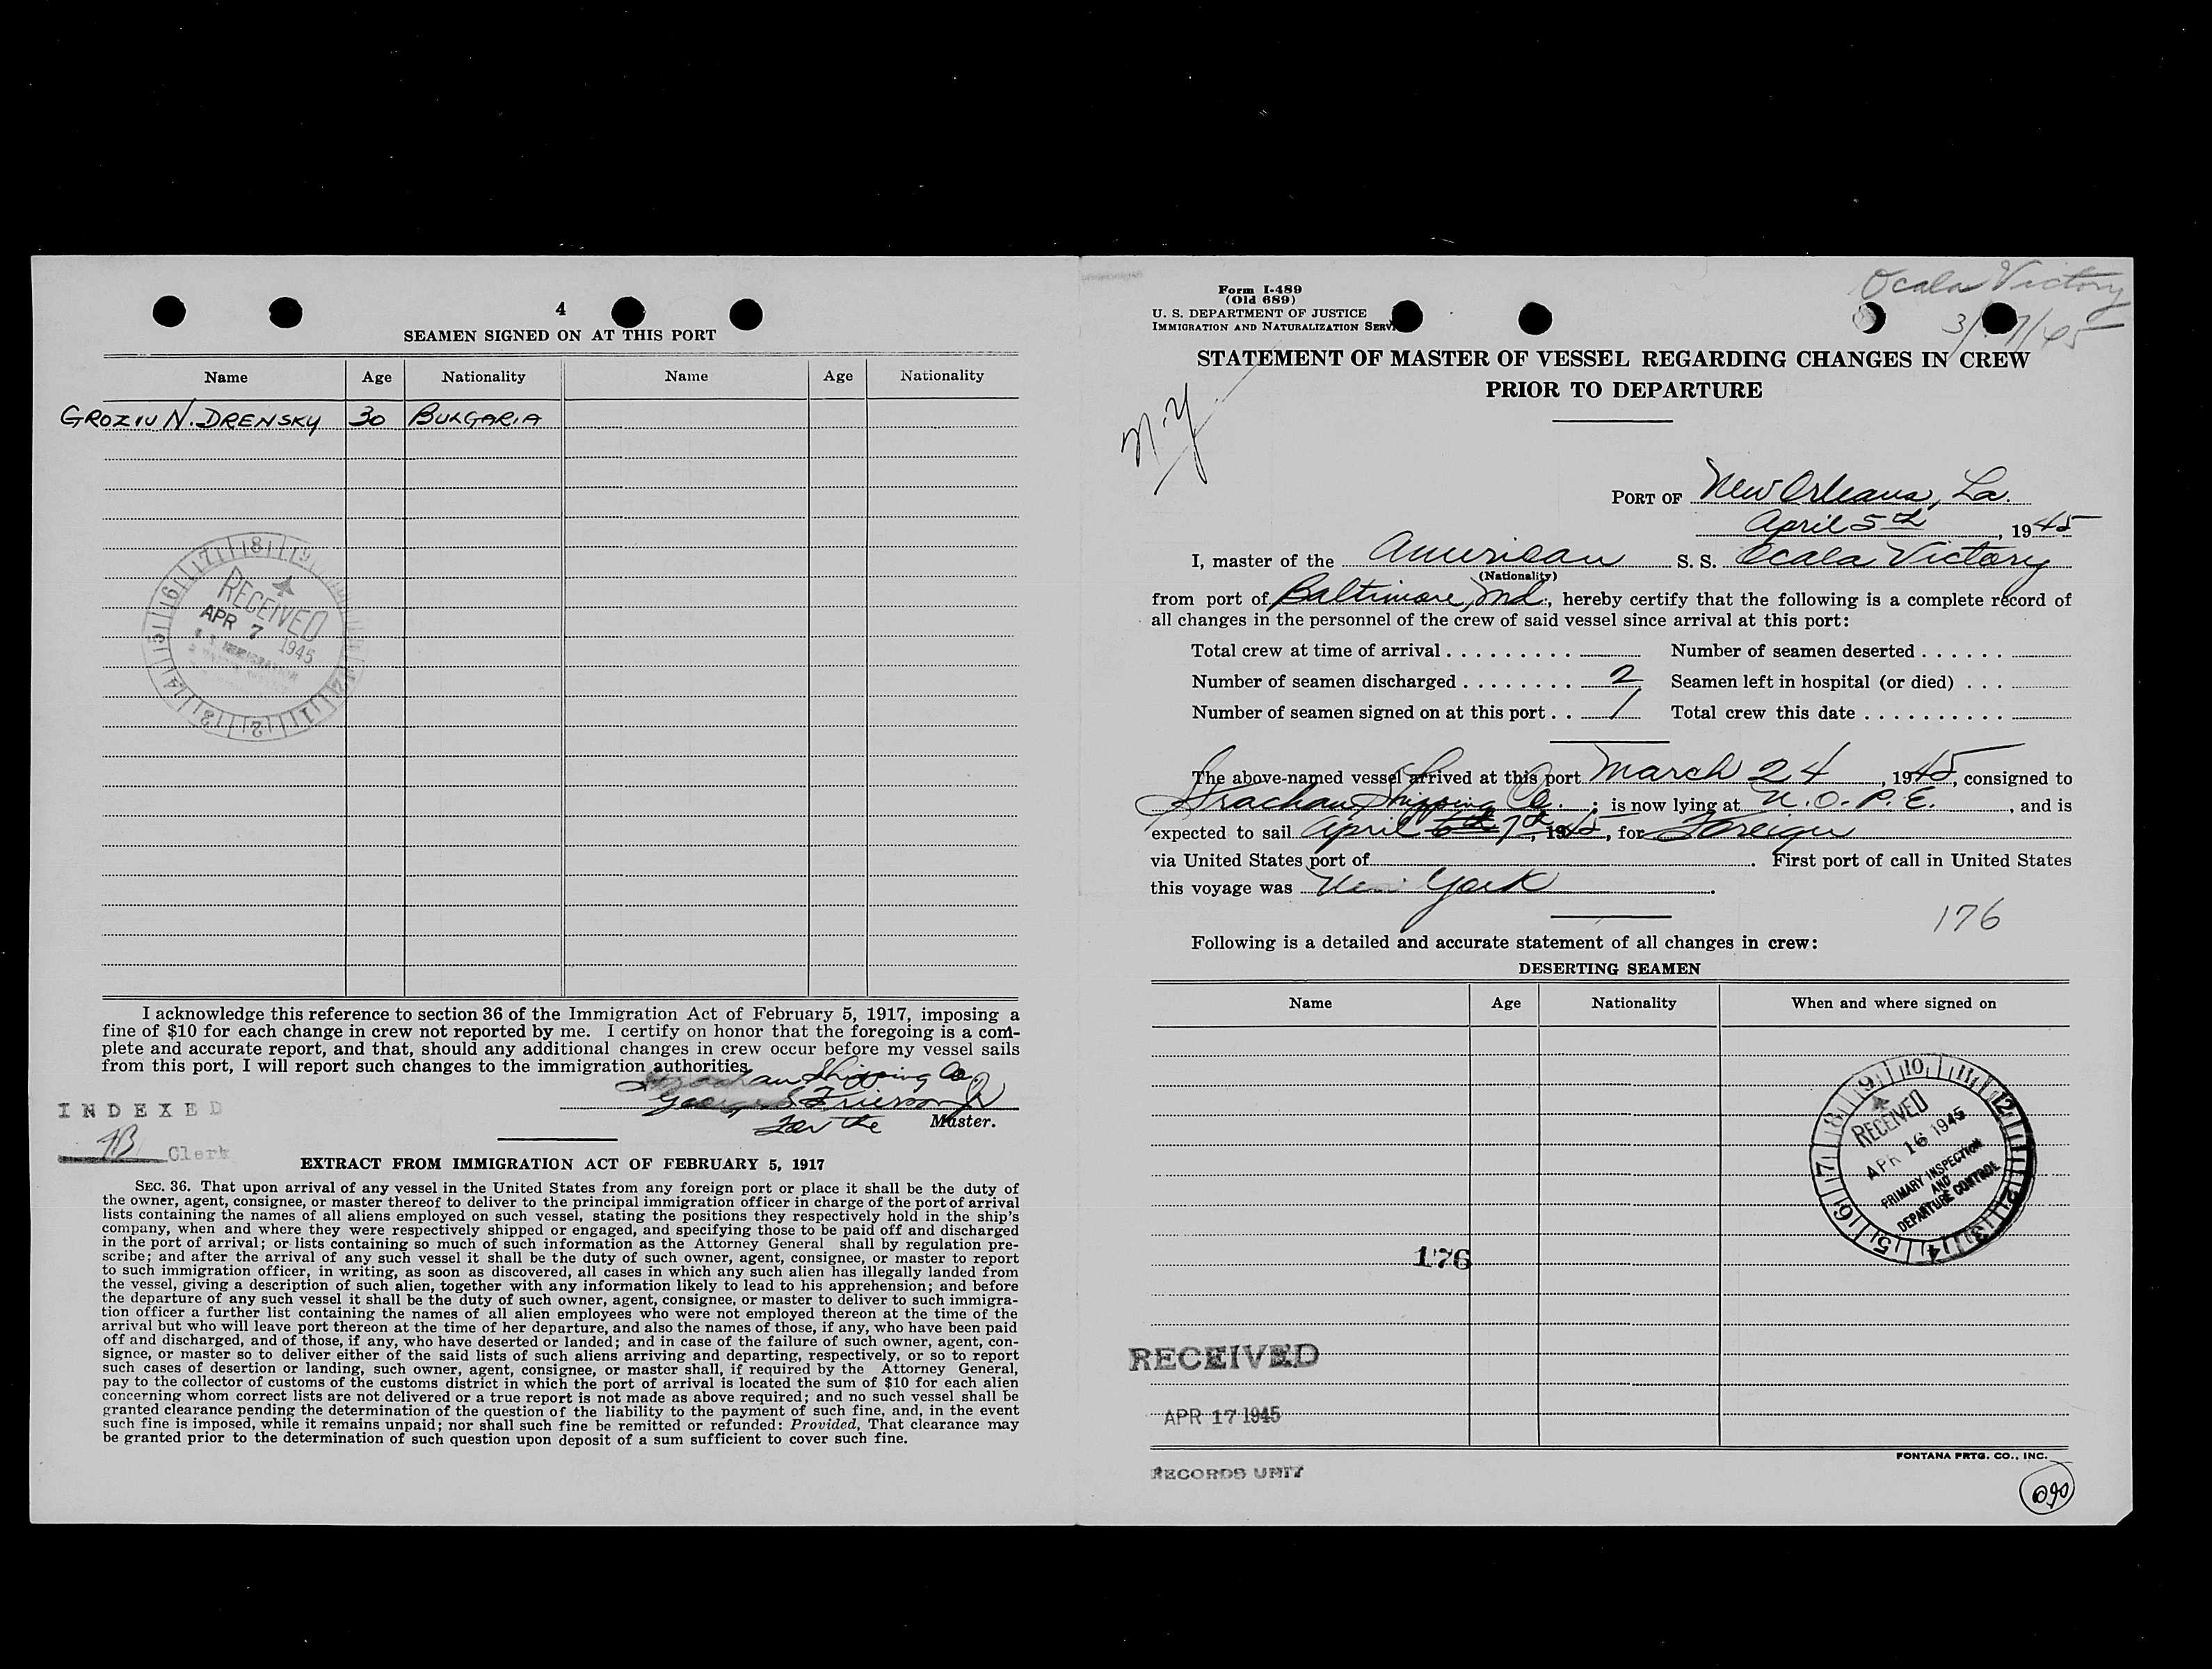 4
SEAMEN SIGNED ON AT THIS PORT
Name Age Nationality Name Age Nationality
GROZIU N. DRENSKY 30 BULGARIA
RECEIVED
APR 7 1945
I acknowledge this reference to section 36 of the Immigration Act of February 5, 1917, imposing a
fine of $10 for each change in crew not reported by me. I certify on honor that the foregoing is a com-
plete and accurate report, and that, should any additional changes in crew occur before my vessel sails
from this port, I will report such changes to the immigration authorities.
Strachan Shipping Co.
For the Master.
INDEXED
Clerk
EXTRACT FROM IMMIGRATION ACT OF FEBRUARY 5, 1917
SEC. 36. That upon arrival of any vessel in the United States from any foreign port or place it shall be the duty of
the owner, agent, consignee, or master thereof to deliver to the principal immigration officer in charge of the port of arrival
lists containing the names of all aliens employed on such vessel, stating the positions they respectively hold in the ship's
company, when and where they were respectively shipped or engaged, and specifying those to be paid off and discharged
in the port of arrival; or lists containing so much of such information as the Attorney General shall by regulation pre-
scribe; and after the arrival of any such vessel it shall be the duty of such owner, agent, consignee, or master to report
to such immigration officer, in writing, as soon as discovered, all cases in which any such alien has illegally landed from
the vessel, giving a description of such alien, together with any information likely to lead to his apprehension; and before
the departure of any such vessel it shall be the duty of such owner, agent, consignee, or master to deliver to such immigra-
tion officer a further list containing the names of all alien employees who were not employed thereon at the time of the
arrival but who will leave port thereon at the time of her departure, and also the names of those, if any, who have been paid
off and discharged, and of those, if any, who have deserted or landed; and in case of the failure of such owner, agent, con-
signee, or master so to deliver either of the said lists of such aliens arriving and departing, respectively, or so to report
such cases of desertion or landing, such owner, agent, consignee, or master shall, if required by the Attorney General,
pay to the collector of customs of the customs district in which the port of arrival is located the sum of $10 for each alien
concerning whom correct lists are not delivered or a true report is not made as above required; and no such vessel shall be
granted clearance pending the determination of the question of the liability to the payment of such fine, and, in the event
such fine is imposed, while it remains unpaid; nor shall such fine be remitted or refunded: Provided, That clearance may
be granted prior to the determination of such question upon deposit of a sum sufficient to cover such fine.
Ocala Victory
Form I-489
(Old 689)
U. S. DEPARTMENT OF JUSTICE
IMMIGRATION AND NATURALIZATION SERV
STATEMENT OF MASTER OF VESSEL REGARDING CHANGES IN CREW
PRIOR TO DEPARTURE
N.Y
PORT OF New Orleans, La.
April 5th, 1945
I, master of the American S. S. Ocala Victory
(Nationality)
from port of Baltimore, Md., hereby certify that the following is a complete record of
all changes in the personnel of the crew of said vessel since arrival at this port:
Total crew at time of arrival . . . . . . . . . Number of seamen deserted . . . . . .
Number of seamen discharged . . . . . . . . 2 Seamen left in hospital (or died) . . .
Number of seamen signed on at this port . . 1 Total crew this date . . . . . . . . . .
The above-named vessel arrived at this port March 24, 1945, consigned to
Strachan Shipping Co.; is now lying at N.O.P.E., and is
expected to sail April 6th 7th, 1945, for Foreign
via United States port of . First port of call in United States
this voyage was New York.
176
Following is a detailed and accurate statement of all changes in crew:
DESERTING SEAMEN
Name Age Nationality When and where signed on
RECEIVED
APR 16 1945
PRIMARY INSPECTION
AND
DEPARTURE CONTROL
176
RECEIVED
APR 17 1945
RECORDS UNIT
FONTANA PRTG. CO., INC.